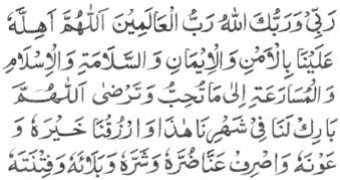 رَبِّىْ وَرَبُّكَ اللهُ رَبُّ الْعَالَمِيْنَ اَللّٰهُمَّ اَهِلَّهٗ
عَلَيْنَا بِالْاَمْنِ وَالْاِيْمَانِ وَالسَّلَامَةِ وَالْاِسْلَامِ
وَالْمُسَارَعَةِ اِلٰى مَا تُحِبُّ وَتَرْضٰى اَللّٰهُمَّ
بَارِكْ لَنَا فِىْ شَهْرِنَا هٰذَا وَارْزُقْنَا خَيْرَهٗ وَ
عَوْنَهٗ وَاصْرِفْ عَنَّا ضُرَّهٗ وَشَرَّهٗ وَبَلَائَهٗ وَفِتْنَتَهٗ